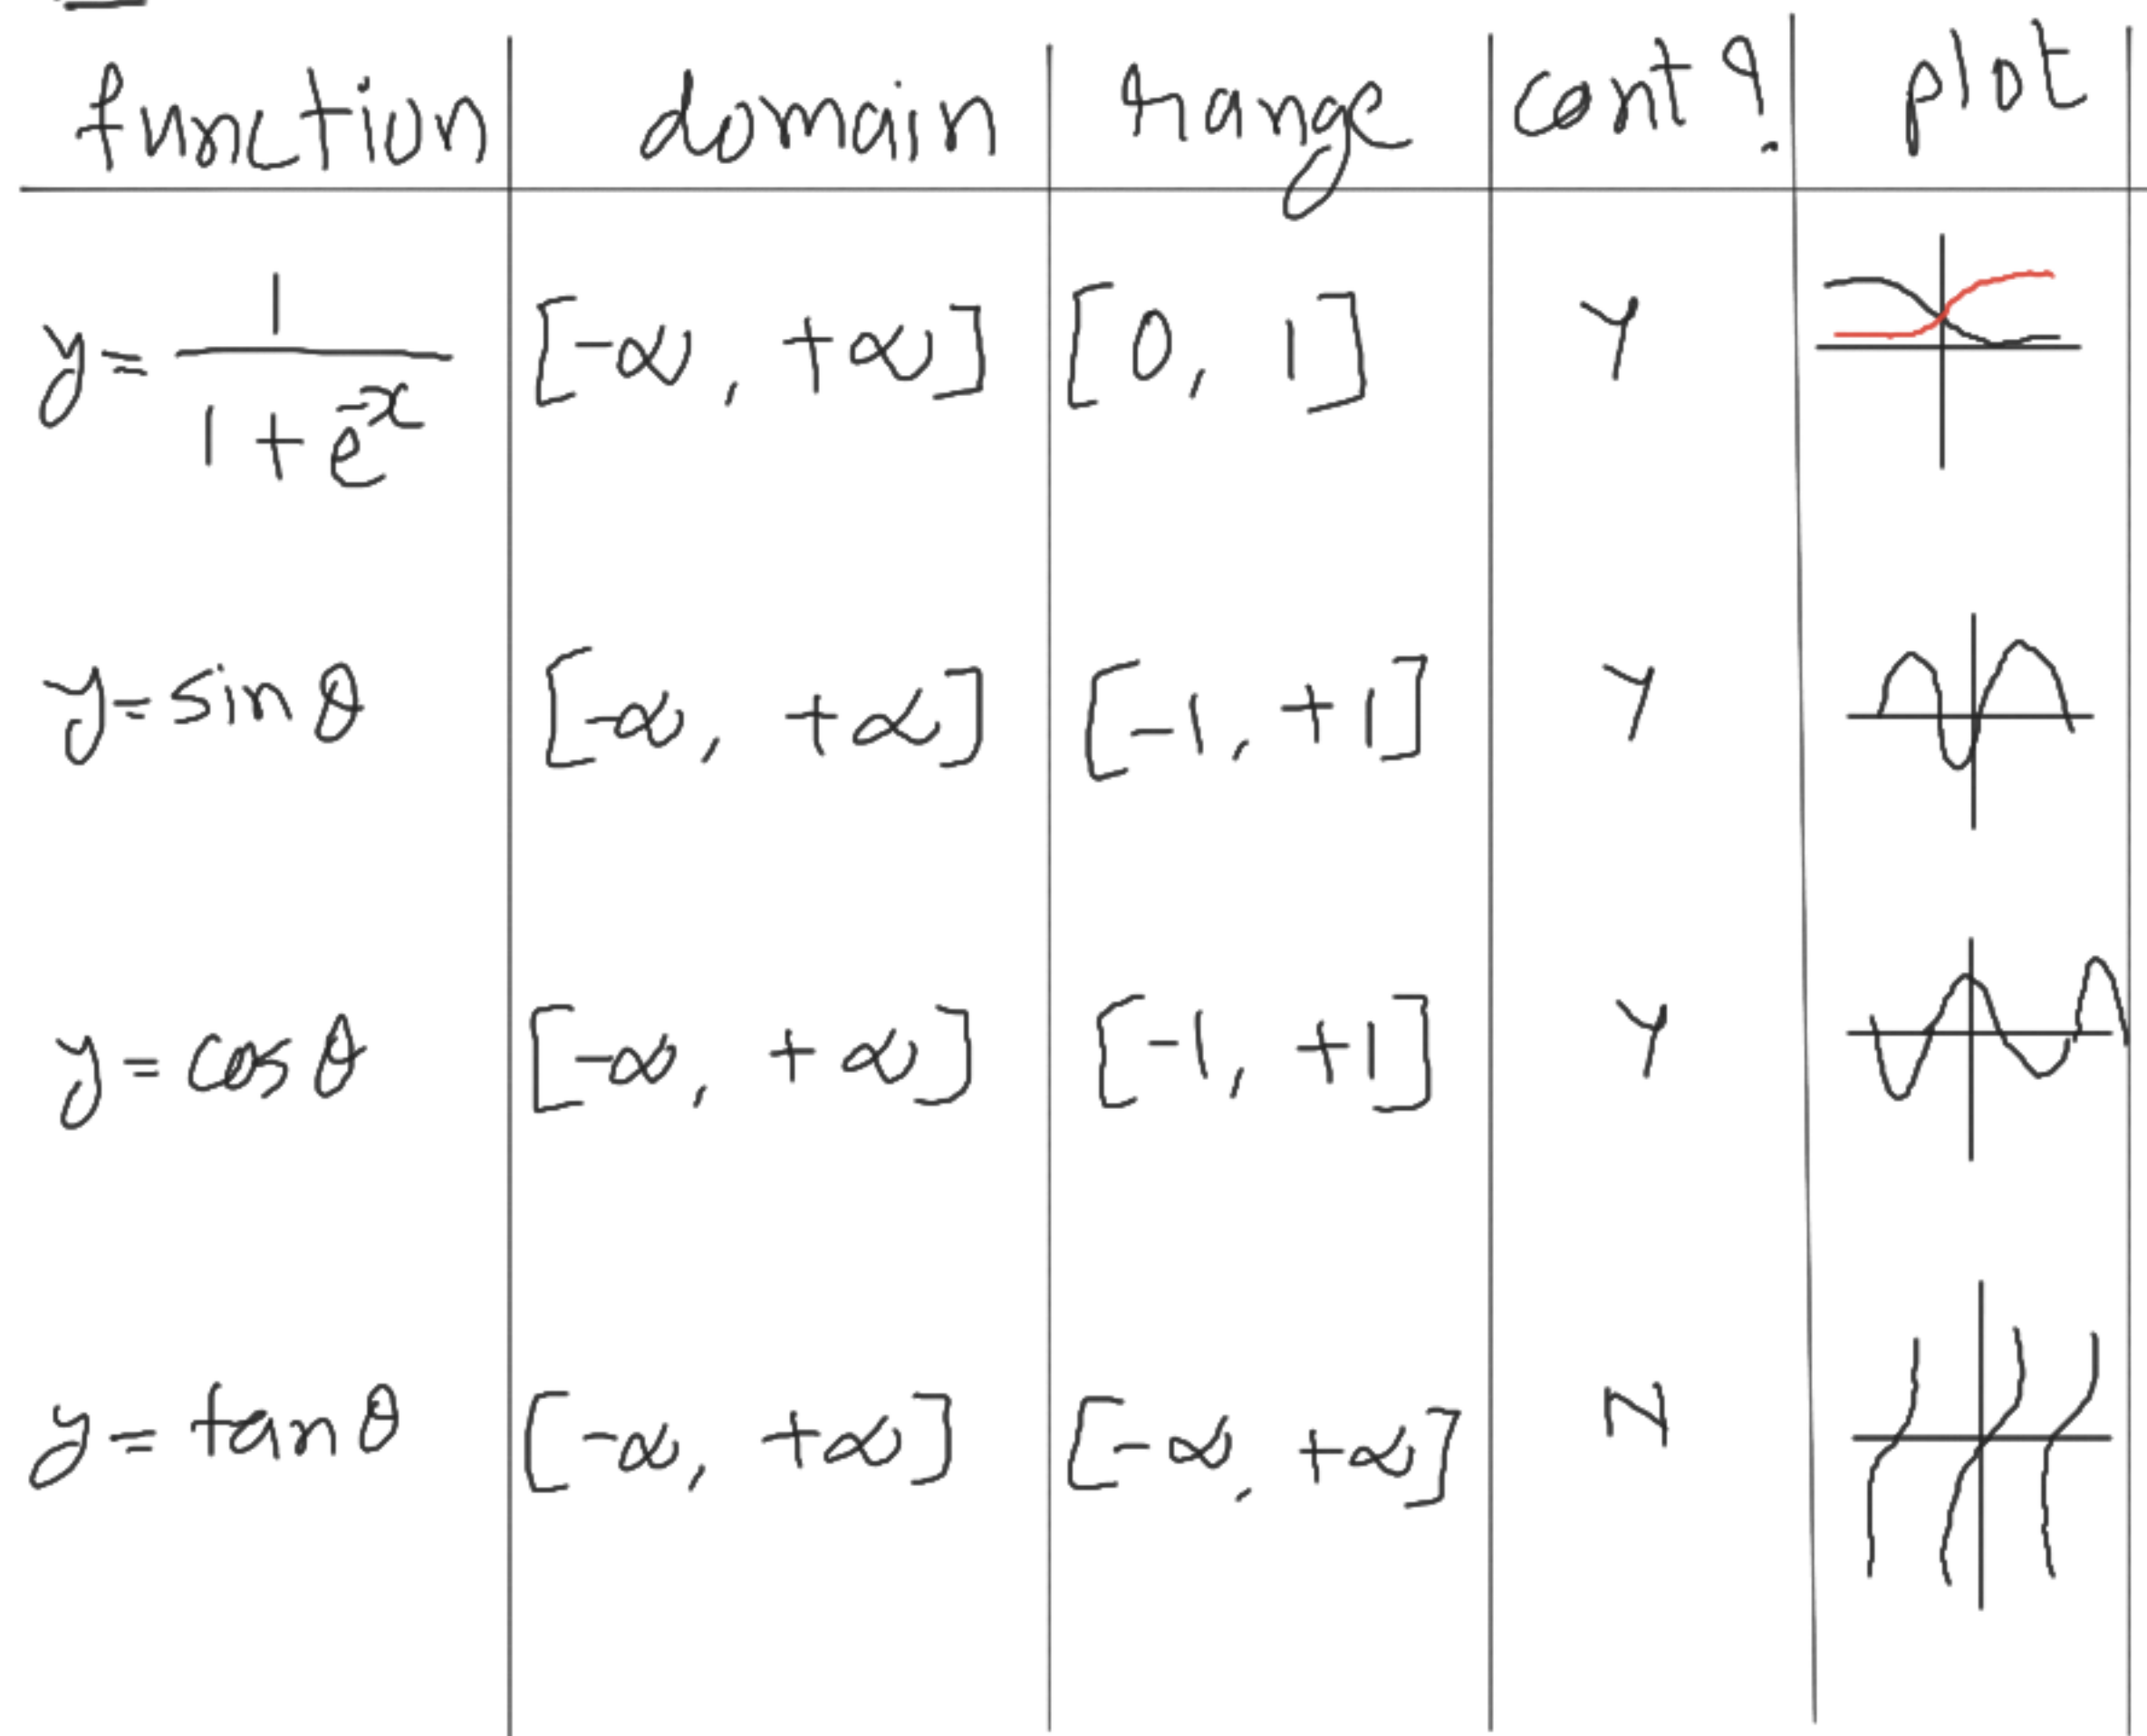 function domain range cont? plot
y = 1 / (1 + e^-x) [-∞, +∞] [0, 1] Y
y = sin θ [-∞, +∞] [-1, +1] Y
y = cos θ [-∞, +∞] [-1, +1] Y
y = tan θ [-∞, +∞] [-∞, +∞] N